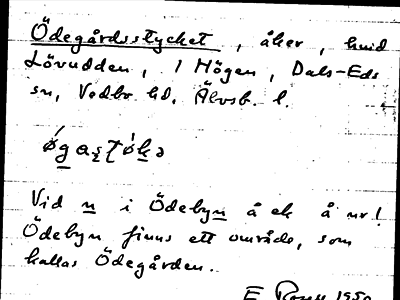 Ödegårdsstycket, åker, huid
Lövudden, 1 Högen, Dals-Eds
sn, Vedbo hd, Älvsb. l.
Vid n i Ödebyn å ek å nr!
Ödebyn finns ett område, som
kallas Ödegården.
E 1950